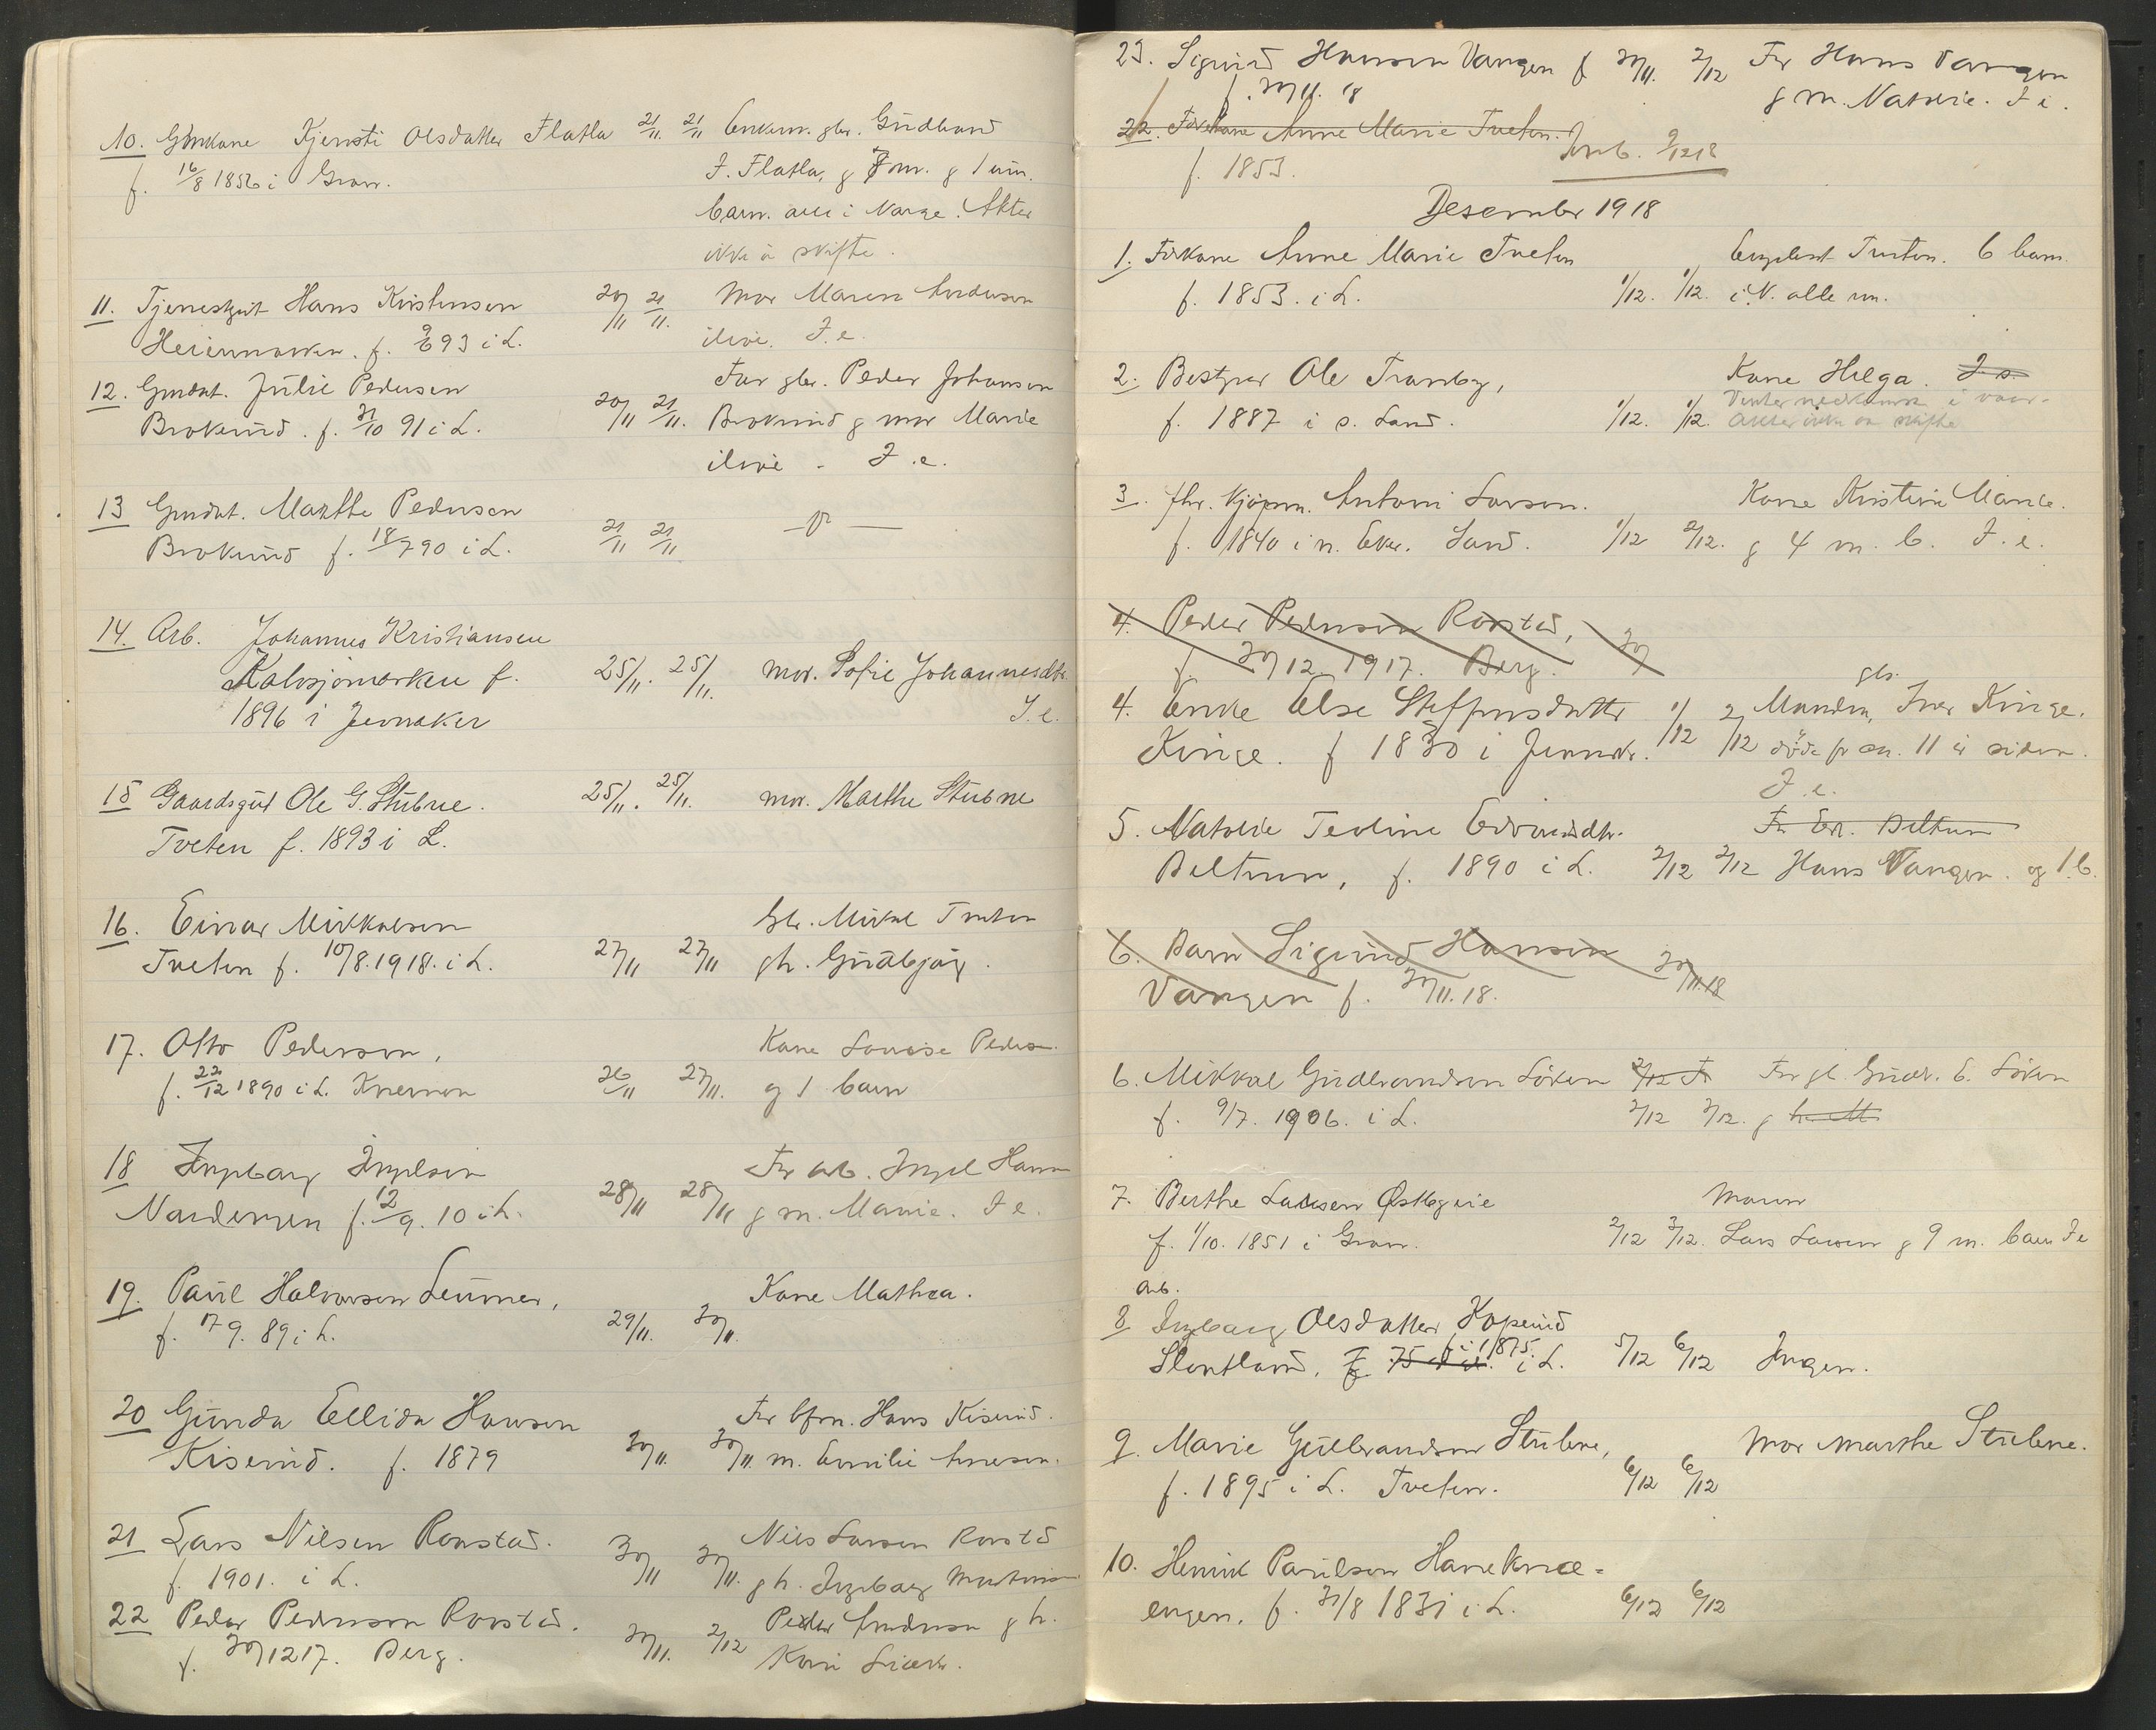 10. Gmkone Kjersti Olsdatter Flatla 21/11. 21/11 Enkem. gbr. Gudbrand
f. 16/8 1856 i Gran. J. Flatla, g 7 m. g 1 um.
barn. alle i Norge. Akter
ikke å skifte.
11. Tjenestgut Hans Kristensen 20/11 21/11. Mor Maren Andersen
f. 9/6 93 i L. ilive. I.e.
12. Gmdat. Julie Pedersen Far gbr. Peder Johansen
Brokerud. f. 31/10 91 i L. 20/11 21/11. Brokerud g mor Marie
ilive - I.e.
13 Gmdat. Marthe Pedersen
Brokerud f. 18/7 90 i L. 21/11 21/11
14. Arb. Johannes Kristiansen
Kalvsjømarken f. 25/11. 25/11. mor. Sofie Johannesdtr.
1896 i Jevnaker I.e.
15 Gaardsgut Ole G. Stubne. 25/11. 25/11. mor. Marthe Stubne
Tveten f. 1893 i L.
16. Einar Mikkelsen Gbr. Mikal Tveten
Tveten f. 10/8. 1918. i L. 27/11 27/11 gh. Gudbjørg.
17. Otto Pedersen, Kone Lovise Peders.
f. 22/12 1890 i L. 26/11 27/11. g 1 barn
18 Ingeborg Ingelsen Far arb. Ingel Hansen
f. 12/9. 10 i L. 28/11 28/11 g m. Marie. I e.
19. Paul Halvorsen Leumer, Kone Mathea.
f. 17 9. 89 i L. 29/11. 30/11.
20 Gunda Ellida Hansen Far bfrm. Hans Kiserud.
Kiserud. f. 1879 30/11. 30/11. m. Emilie Arnesen.
21 Lars Nilsen Ronstad. Nils Larsen Ronstd
f. 1901. i L. 30/11 30/11. gh. Ingeborg
22 Peder Pedersen Ronstad. Peder Andersen g h.
f. 30/12 17. Berg. 30/11. 2/12 Kari
23. Sigurd Hansen Vangen f 30/11. 2/12 Far Hans Vangen
f. 30/11. 18 g m. Natalie. I e.
22. Forkone Anne Marie Tveten.
f. 1853. Innb. 9/12 18
Desember 1918
1. Forkone Anne Marie Tveten Tveten. 6 barn.
f. 1853. i L. 1/12. 1/12. i N. alle m.
2. Bestyrer Ole Tranby, Kone Helga. I.e.
Venter nedkomst i vaar.
f. 1887 i s. Land. 1/12. 1/12. Akter ikke å skifte
3. fhv. Kjøpm. Antoni Larsen. Kone Kristine Marie.
f. 1840 i n. Eker. Land. 1/12 2/12. g 4 m. b. I.e.
4. Peder Pedersen Ronstad, 30/
f. 30/12 1917. Berg.
gbr.
4. Enke Else Steffensdatter 1/12 2/12 Manden, Iver Kinge.
Kinge. f 1830 i Jevnakr. døde for ca. 11 år siden.
I.e.
5. Natalie Teoline Edvardsdtr. Far Edv. Beltrun
Beltrun, f. 1890 i L. 2/12 2/12 Hans Vangen. og 1 b.
6. Barn Sigurd Hansen 30/11.18
Vangen f. 30/11.18.
6. Mikkal Gudbrandsen Løken 2/12 Far gb. Gudbr. E. Løken
f. 9/7. 1906. i L. 2/12 3/12. g
7. Berthe Larsen Østbyeie Mann
f. 1/10. 1851 i Gran. 2/12 3/12. Lars Larsen g 9 m. barn I e
Arb.
8 Ingeborg Olsdatter Koperud
f. i 1875. i L. 5/12 6/12 Ingen.
9. Marie Gulbrandsen Stubne, Mor Marthe Stubne.
f. 1895 i L. Tveten. 6/12 6/12
10. Henrik Paulsen Haneknæ-
engen. f. 31/8 1831 i L. 6/12 6/12